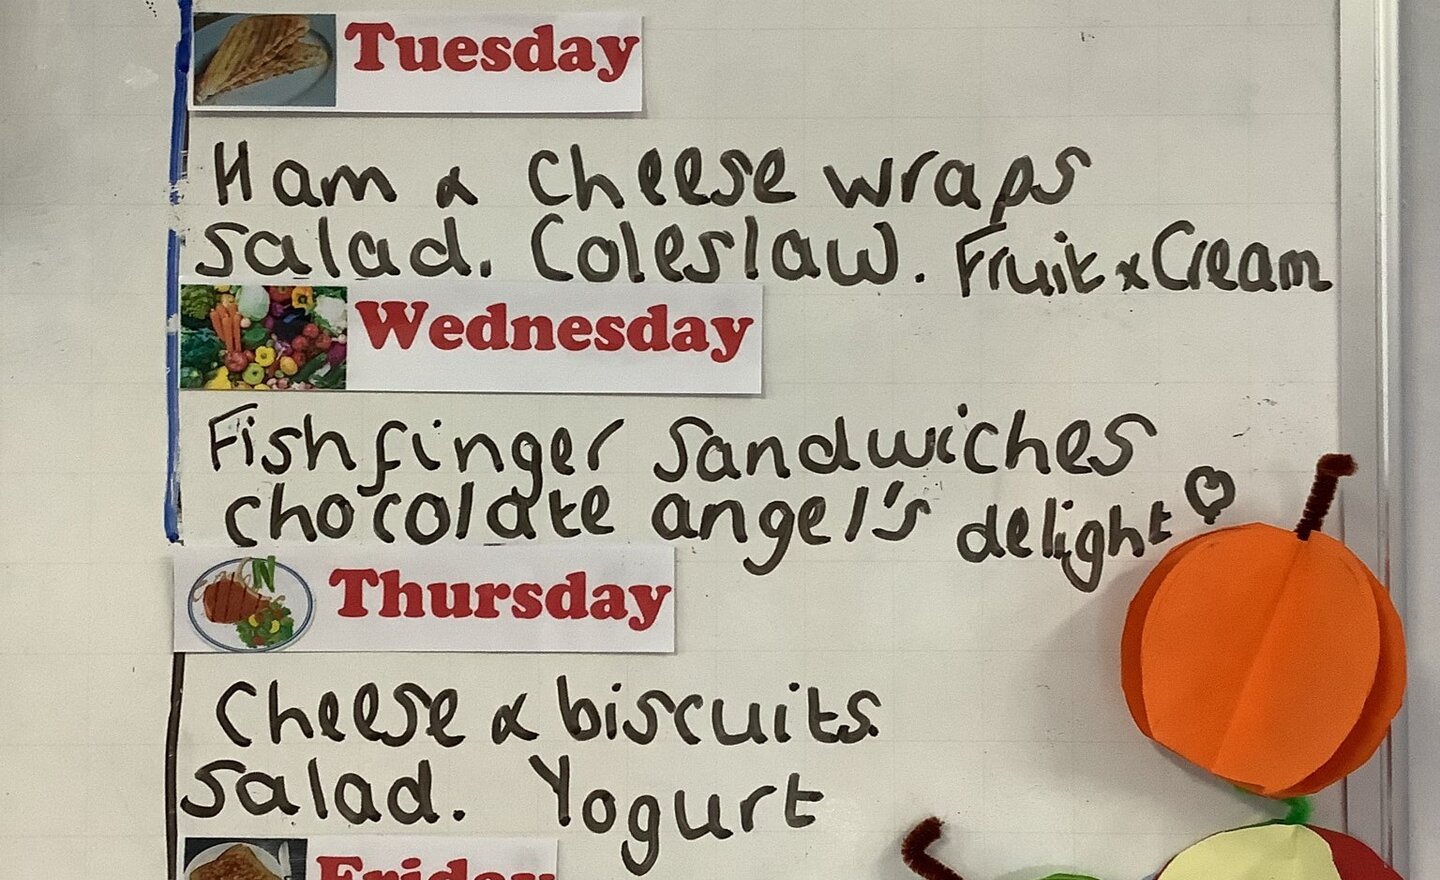 Tuesday
Ham & cheese wraps
salad. Coleslaw. Fruit & Cream
Wednesday
Fishfinger Sandwiches
chocolate angel's delight
Thursday
Cheese & biscuits
salad. Yogurt
Friday